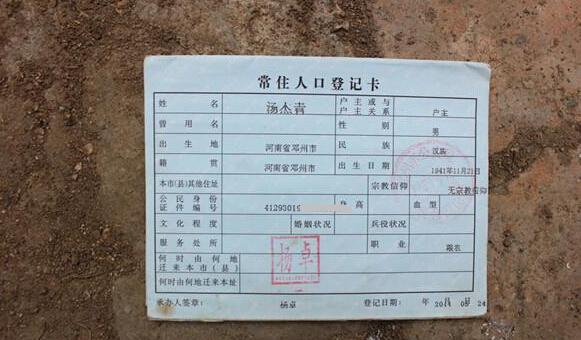 常住人口登记卡
姓名 汤杰青 户主或与户主关系 户主
曾用名 性别 男
出生地 河南省邓州市 民族 汉族
籍贯 河南省邓州市 出生日期 1941年11月21日
本市(县)其他住址 宗教信仰 无宗教信仰
公民身份证件编号 41293019 身高 血型
文化程度 婚姻状况 兵役状况
服务处所 职业 粮农
何时由何地迁来本市(县)
何时由何地迁来本址
杨卓
承办人签章: 杨卓 登记日期: 年 月 24